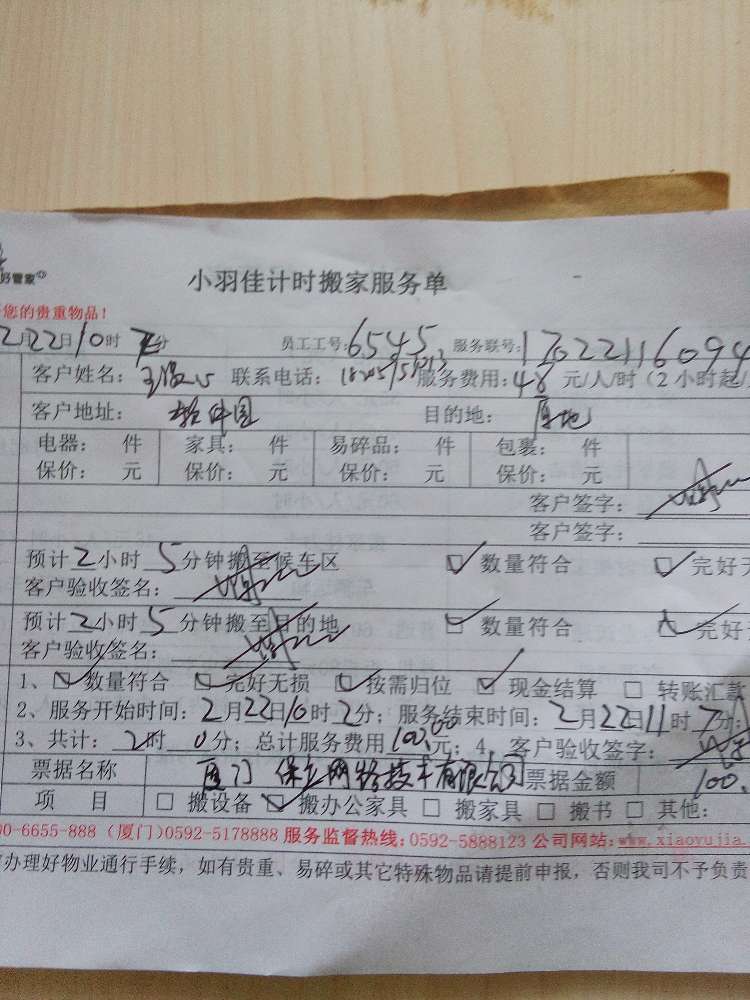 好管家
小羽佳计时搬家服务单
您的贵重物品！
2月22日10时 分 员工工号：6545 服务联号：17022116094
客户姓名： 联系电话： 服务费用：48 元/人/时（2小时起/
客户地址： 软件园 目的地： 原地
电器： 件 家具： 件 易碎品： 件 包裹： 件
保价： 元 保价： 元 保价： 元 保价： 元
客户签字：
客户签字：
预计2小时5分钟搬至候车区 ☑ 数量符合 ☑ 完好无
客户验收签名：
预计2小时5分钟搬至目的地 ☑ 数量符合 ☑ 完好无
客户验收签名：
1、☑ 数量符合 ☑ 完好无损 ☑ 按需归位 ☑ 现金结算 □ 转账汇款
2、服务开始时间：2月22日10时2分；服务结束时间：2月22日11时7分；
3、共计：2时0分；总计服务费用100.00元；4、客户验收签字：
票据名称 厦门 网络技术有限公司 票据金额 100.
项 目 □ 搬设备 ☑ 搬办公家具 □ 搬家具 □ 搬书 □ 其他：
00-6655-888（厦门）0592-5178888 服务监督热线：0592-5888123 公司网站：www.xiaoyujia.
办理好物业通行手续，如有贵重、易碎或其它特殊物品请提前申报，否则我司不予负责